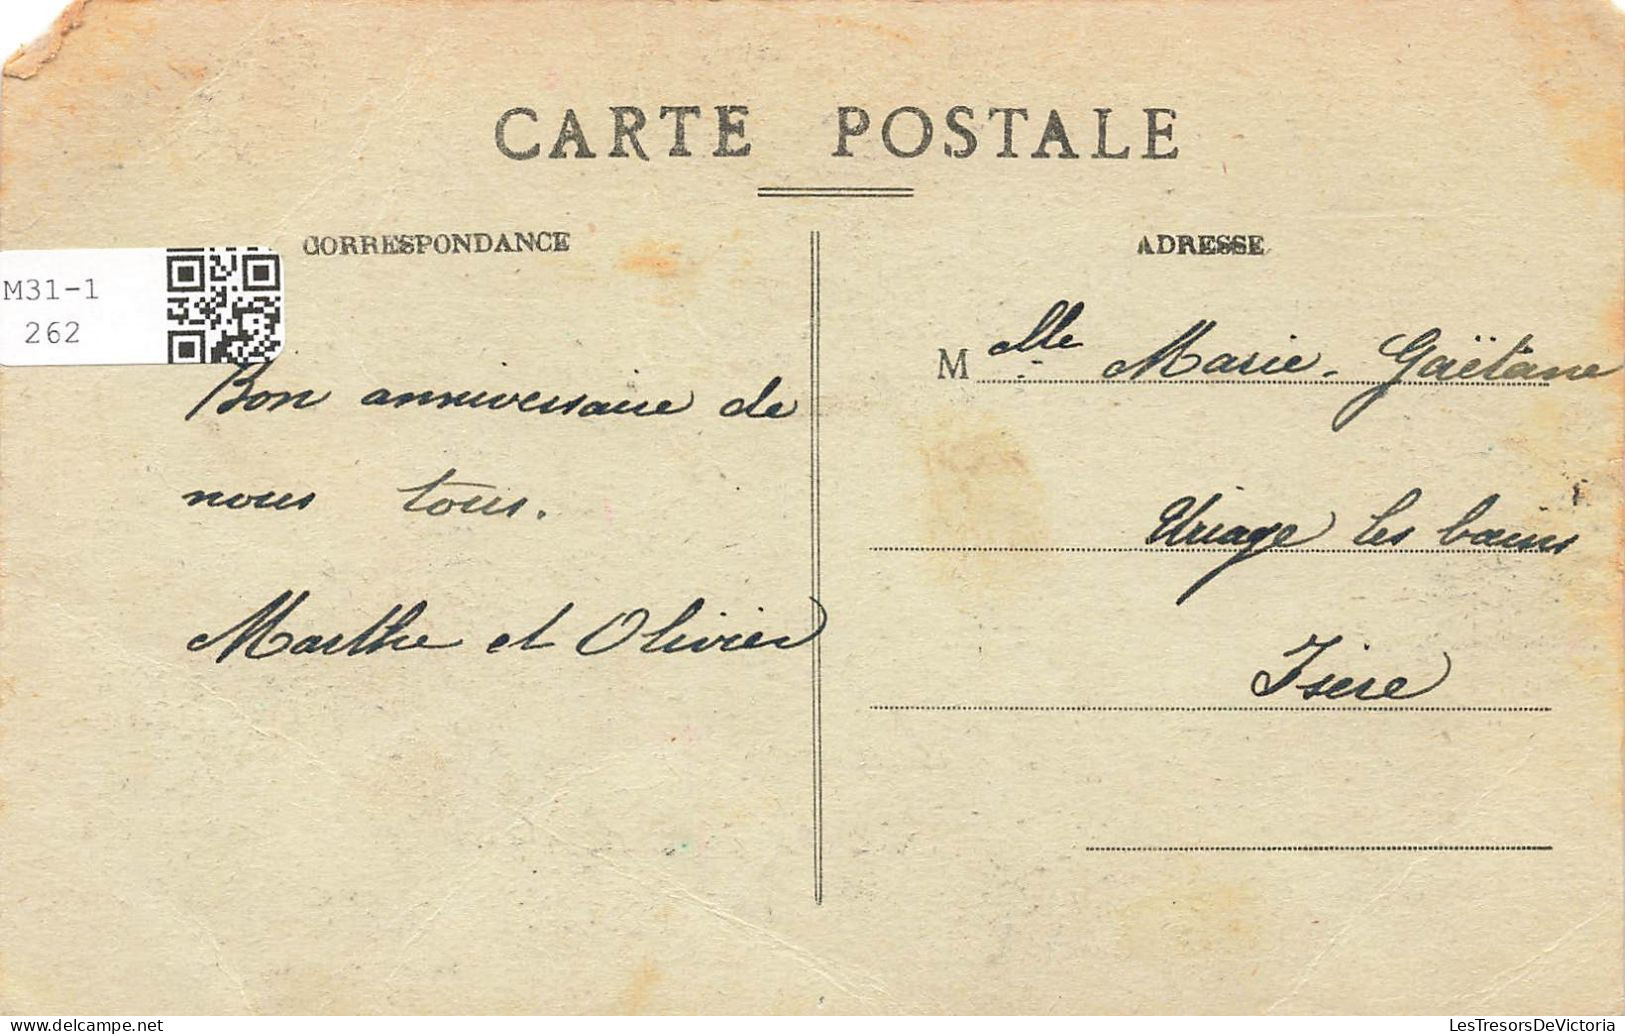 CARTE POSTALE
CORRESPONDANCE
ADRESSE
M31-1
262
Bon anniversaire de
nous tous.
Marthe et Olivier
M elle Marie-Gaëtane
Uriage les bains
Isère
delcampe.net
LesTresorsDeVictoria